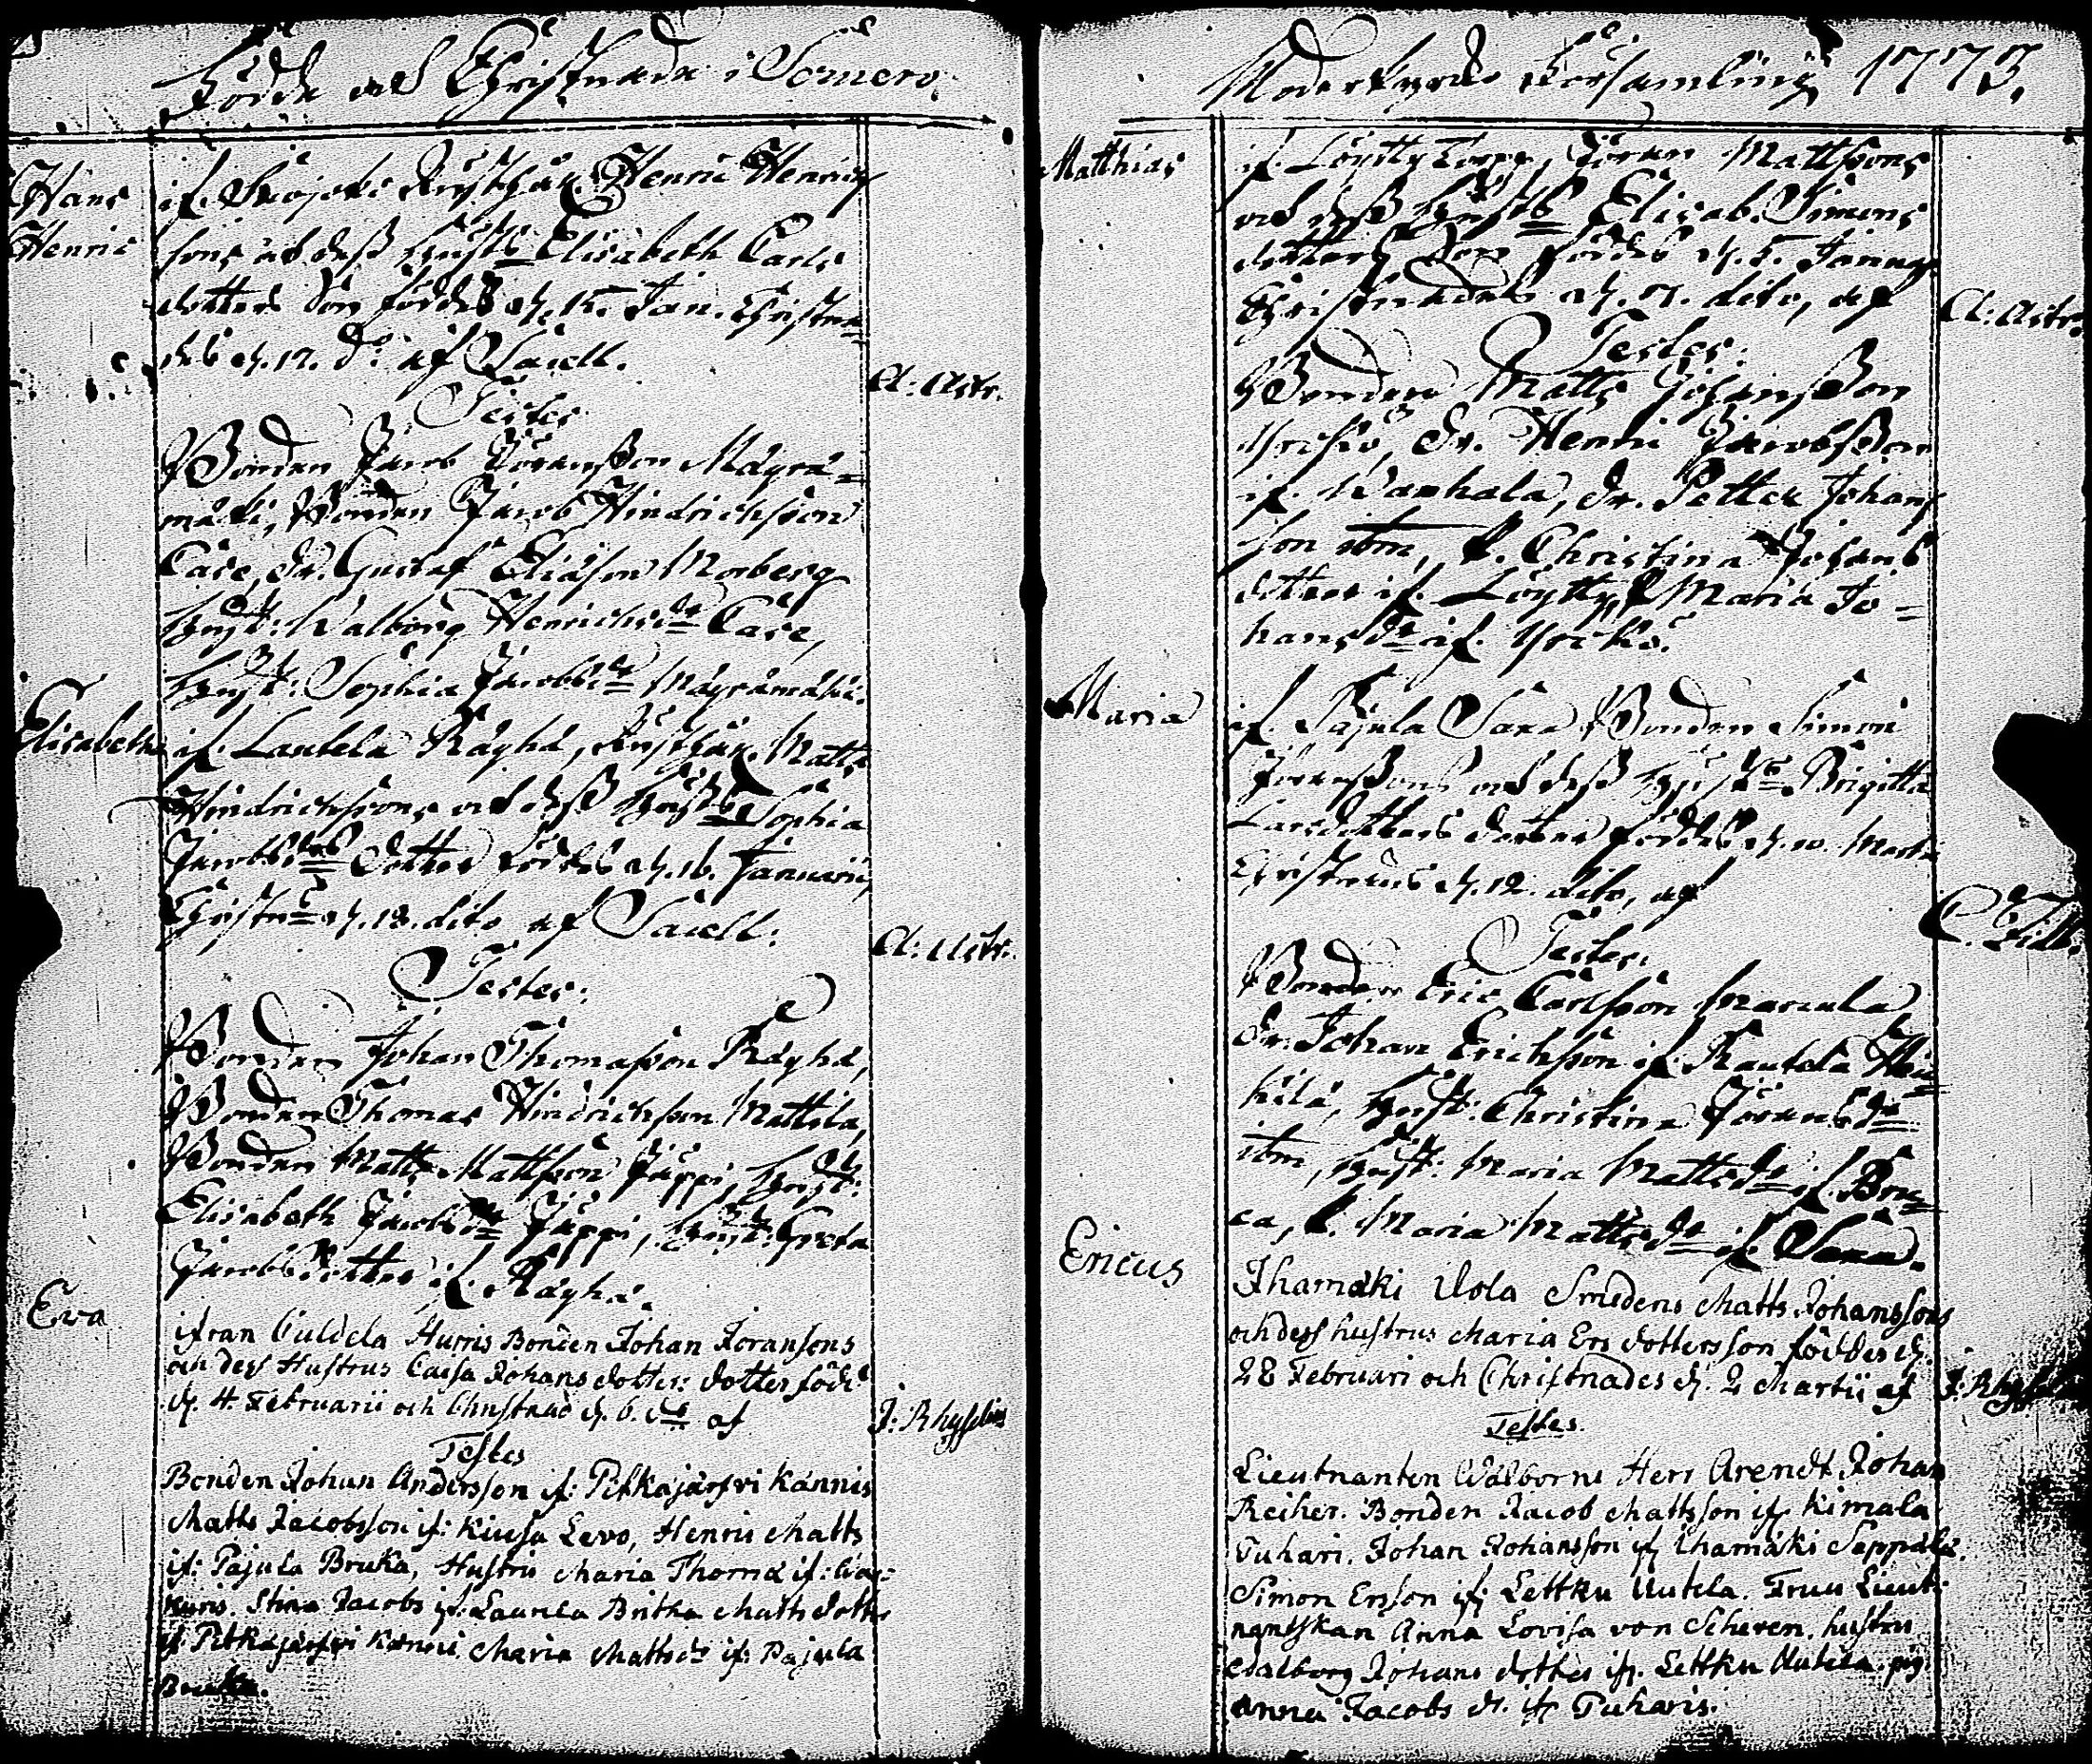 Födde och Christnade i Somero
Hans
Henric
ifr. Skojoki Rusthål. Henric Henrics
sons och dess hustrs Elisabeth Carls
dotters Son föddes d. 15. Jan. Christna
des d. 17. d:o af Saell.
A: Astr.
Testes
Bonden Jacob Göransson Mäyrä=
mäki, Bonden Jacob Hindrichsson
Case, Dr. Gustaf Eliason Morberg
hust: Walborg Henrichsdr Case,
hust: Sophia Jacobsdr Mäyrämäki.
Elisabetha
if. Lautela Räyhä, Rusthål. Matts
Hindrichssons och dess hustrs Sophia
Jacobsdrs Dotter föddes d. 16. Januarii
Christns d. 18. dito af Saell:
A: Astr.
Testes:
Bonden Johan Thomasson Räyhä,
Bonden Thomas Hindrichsson Mattila,
Bonden Matts Mattsson Jäppi, hust:
Elisabeth Jacobsdr Jäppi, hust: Greta
Jacobsdotter if. Räyhä.
Eva
ifran Culdela Hurris Bonden Johan Joransons
och dess Hustrus Caisa Johans dotters dotter född
d. 4. Februarii och Christnad d. 6. do af
J: Rhyselius
Testes
Bonden Johan Andersson if: Pitkäjärfvi Kännis
Matts Jacobsson if: Kiusa Levo, Henric Matts
if: Pajula Bruka, Hustru Maria Thoma if:
Stina Jacobs if: Lautela Britha Matts dotter
if Pitkäjärfvi Kännis Maria Mattsdr if: Pajula
Bruka.
Moderkyrko Församling 1773.
Matthias
if. Löytty Torpe, Göran Mattssons
och dess hustrs Elisab. Simons
dotters Son föddes d. 5. Januar.
Christnades d. 7. dito, af
A: Astr.
Testes:
Bonden Matts Johansson
Yrckö, Dr. Henric Jacobsson
if. Wanhala, Dr. Petter Johans
son ibm, P. Christina Johans
dotter if. Löytty, P. Maria Jo=
hansdr if. Yrckö.
Maria
if. Pajula Saxa Bonden Simon
Göranssons och dess hustrs Brigitta
Larsdotters dotter föddes d. 10. Martii
Christnades d. 12. dito, af
Testes.
Bonden Eric Carlsson Marcula
Dr. Johan Erichsson if. Rautela Hei
kilä, hust: Christina Göransdr
ibm, hust: Maria Mattsdr if. Bru
ca, P. Maria Mattsdr if. Saxa.
Ericus
Ihamäki Uola Smedens Matts Johanssons
och dess hustrus Maria Ers dotters son föddes d.
28 Februari och Christnades d. 2 Martii af
J: Rhyselius
Testes.
Lieutnanten Walborne Herr Arendt Johan
Reiher. Bonden Jacob Mattsson if Kimala
Puhari. Johan Johansson if Ihamäki Seppälä.
Simon Ersson if Lettku Uutela. Fruu Lieut:
nantskan Anna Lovisa von Scheven. hustru
Walborg Johans dotter if. Lettku Uutela. pig
Anna Jacobs dr. if Puharis.